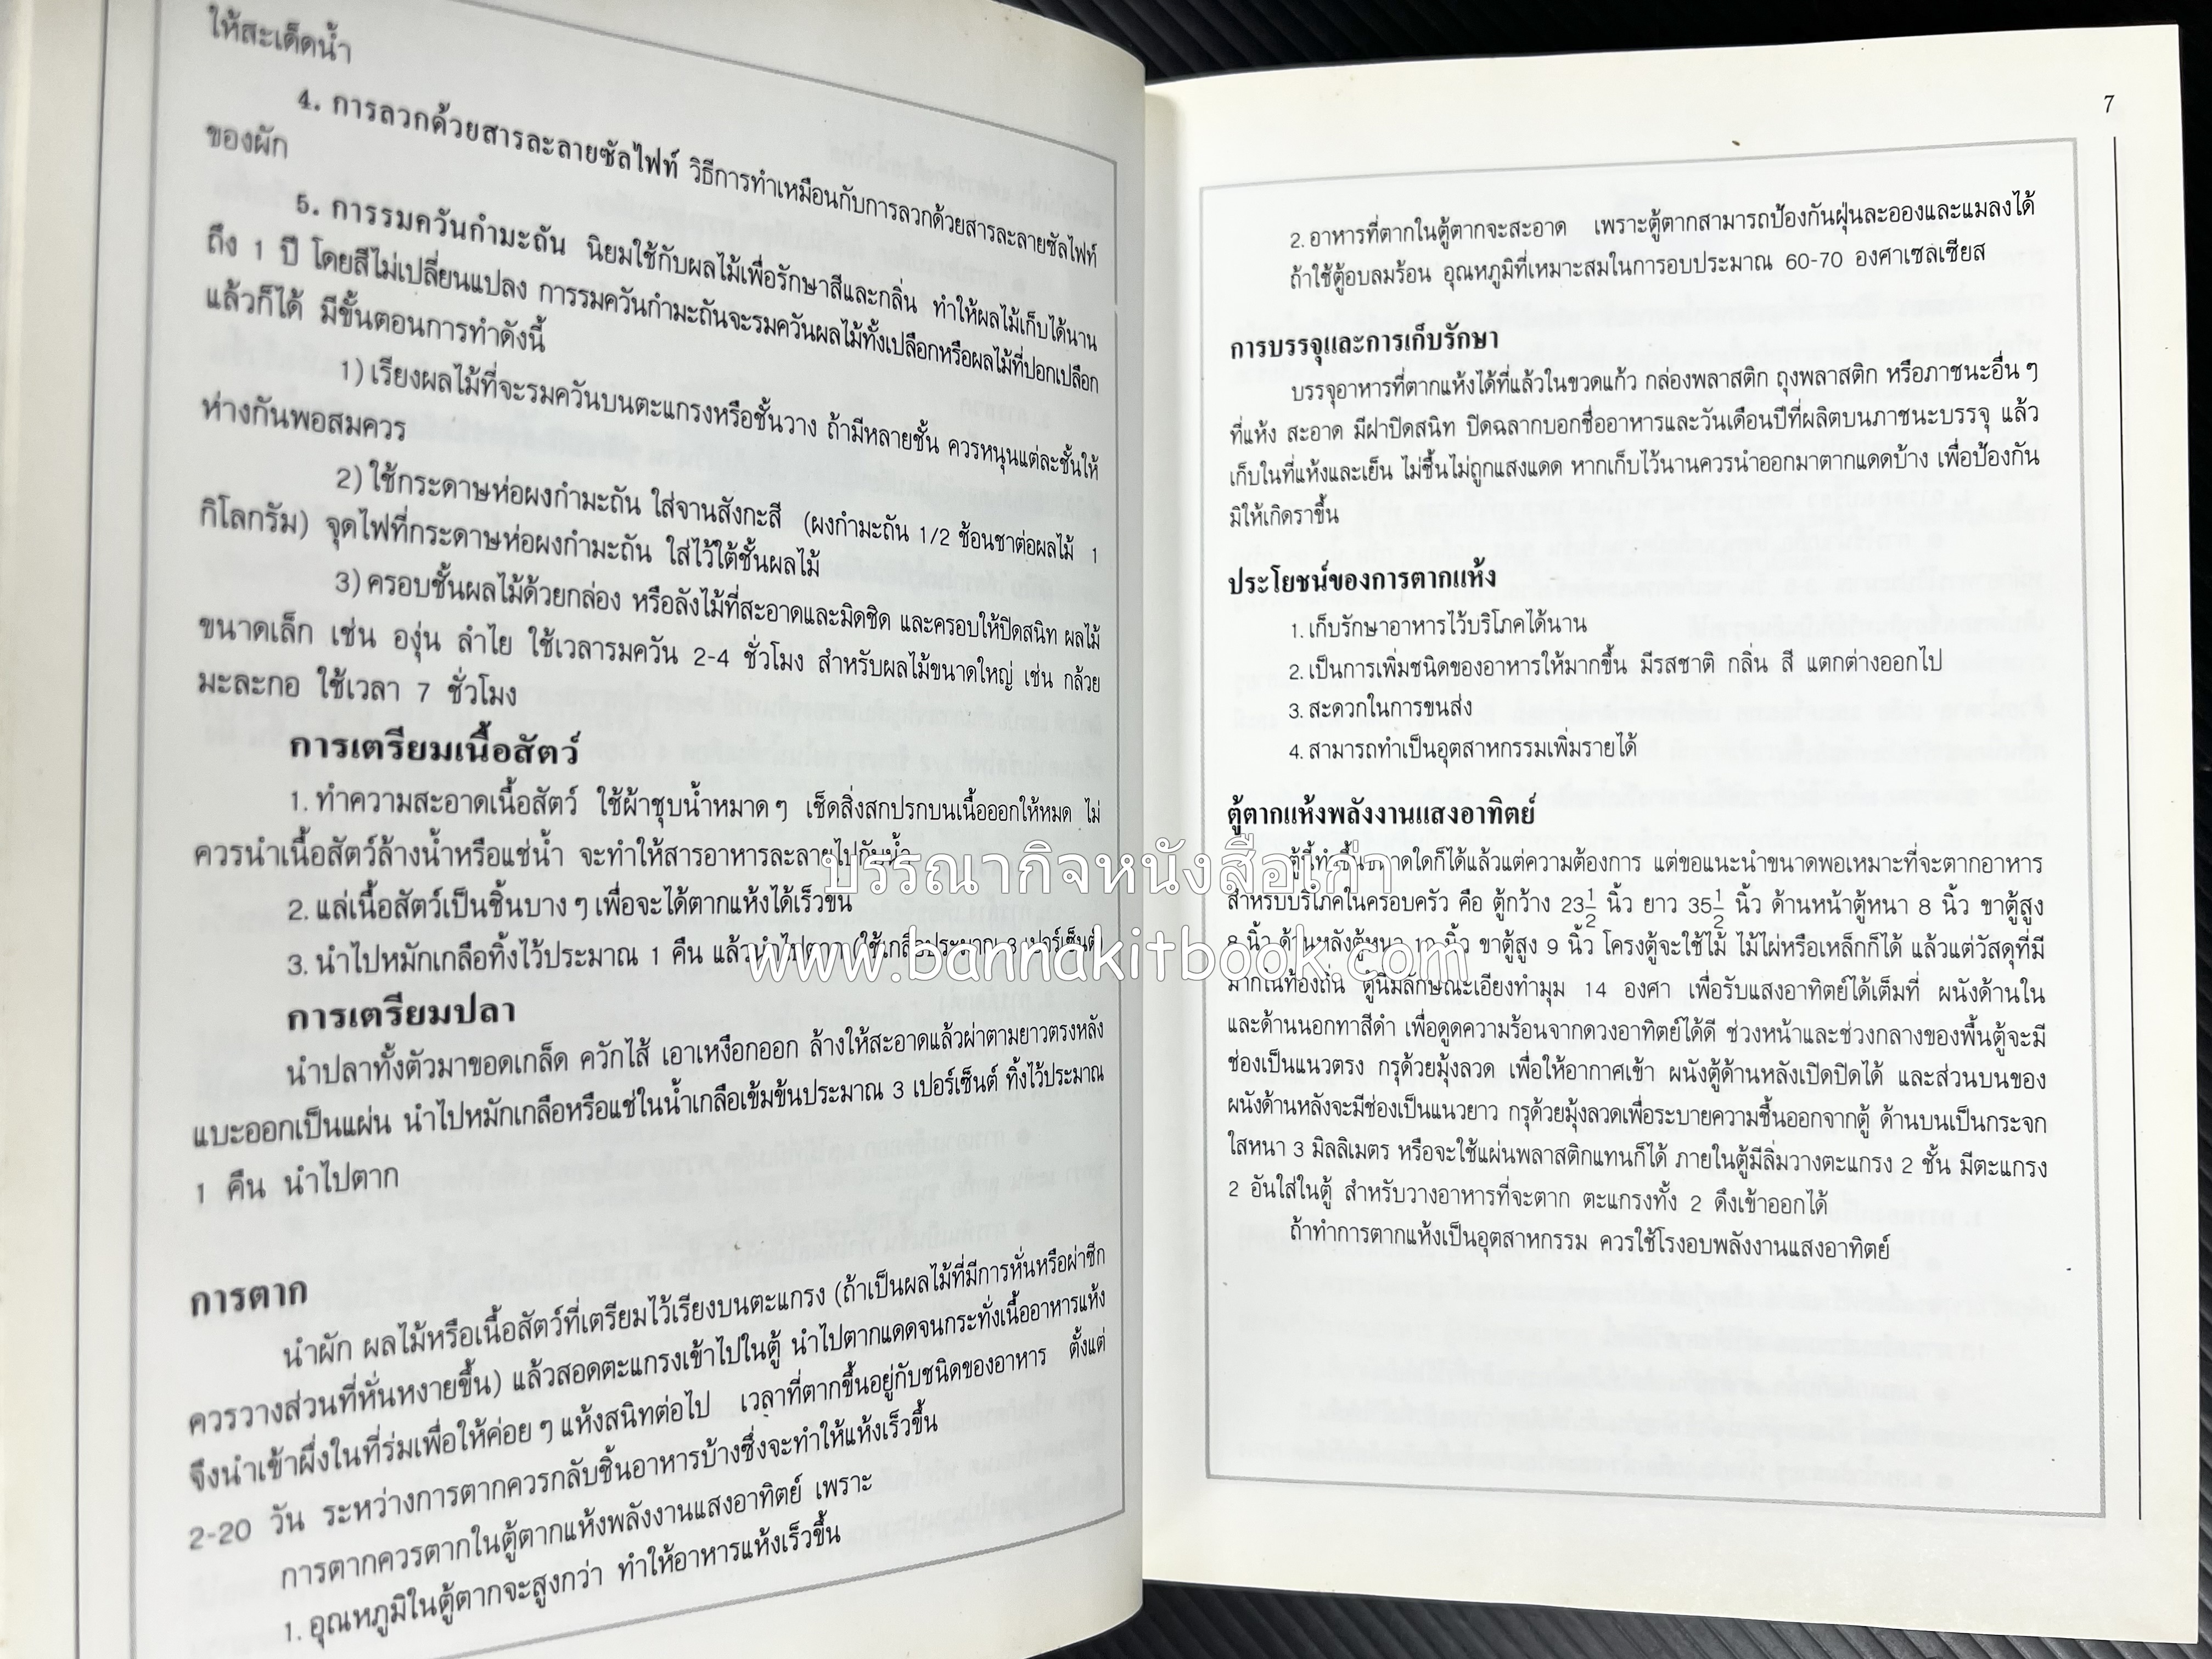 ให้สะเด็ดน้ำ
4. การลวกด้วยสารละลายซัลไฟท์ วิธีการทำเหมือนกับการลวกด้วยสารละลายซัลไฟท์
ของผัก
5. การรมควันกำมะถัน นิยมใช้กับผลไม้เพื่อรักษาสีและกลิ่น ทำให้ผลไม้เก็บได้นาน
ถึง 1 ปี โดยสีไม่เปลี่ยนแปลง การรมควันกำมะถันจะรมควันผลไม้ทั้งเปลือกหรือผลไม้ที่ปอกเปลือก
แล้วก็ได้ มีขั้นตอนการทำดังนี้
1) เรียงผลไม้ที่จะรมควันบนตะแกรงหรือชั้นวาง ถ้ามีหลายชั้น ควรหนุนแต่ละชั้นให้
ห่างกันพอสมควร
2) ใช้กระดาษห่อผงกำมะถัน ใส่จานสังกะสี (ผงกำมะถัน 1/2 ช้อนชาต่อผลไม้ 1
กิโลกรัม) จุดไฟที่กระดาษห่อผงกำมะถัน ใส่ไว้ใต้ชั้นผลไม้
3) ครอบชั้นผลไม้ด้วยกล่อง หรือลังไม้ที่สะอาดและมิดชิด และครอบให้ปิดสนิท ผลไม้
ขนาดเล็ก เช่น องุ่น ลำไย ใช้เวลารมควัน 2-4 ชั่วโมง สำหรับผลไม้ขนาดใหญ่ เช่น กล้วย
มะละกอ ใช้เวลา 7 ชั่วโมง
การเตรียมเนื้อสัตว์
1. ทำความสะอาดเนื้อสัตว์ ใช้ผ้าชุบน้ำหมาดๆ เช็ดสิ่งสกปรกบนเนื้อออกให้หมด ไม่
ควรนำเนื้อสัตว์ล้างน้ำหรือแช่น้ำ จะทำให้สารอาหารละลายไปกับน้ำ
2. แล่เนื้อสัตว์เป็นชิ้นบางๆ เพื่อจะได้ตากแห้งได้เร็วขึ้น
3. นำไปหมักเกลือทิ้งไว้ประมาณ 1 คืน แล้วนำไปตาก (ใช้เกลือประมาณ 3 เปอร์เซ็นต์)
การเตรียมปลา
นำปลาทั้งตัวมาขอดเกล็ด ควักไส้ เอาเหงือกออก ล้างให้สะอาดแล้วผ่าตามยาวตรงหลัง
แบะออกเป็นแผ่น นำไปหมักเกลือหรือแช่ในน้ำเกลือเข้มข้นประมาณ 3 เปอร์เซ็นต์ ทิ้งไว้ประมาณ
1 คืน นำไปตาก
การตาก
นำผัก ผลไม้หรือเนื้อสัตว์ที่เตรียมไว้เรียงบนตะแกรง (ถ้าเป็นผลไม้ที่มีการหั่นหรือผ่าซีก
ควรวางส่วนที่หั่นหงายขึ้น) แล้วสอดตะแกรงเข้าไปในตู้ นำไปตากแดดจนกระทั่งเนื้ออาหารแห้ง
จึงนำเข้าผึ่งในที่ร่มเพื่อให้ค่อยๆ แห้งสนิทต่อไป เวลาที่ตากขึ้นอยู่กับชนิดของอาหาร ตั้งแต่
2-20 วัน ระหว่างการตากควรกลับชิ้นอาหารบ้างซึ่งจะทำให้แห้งเร็วขึ้น
การตากควรตากในตู้ตากแห้งพลังงานแสงอาทิตย์ เพราะ
1. อุณหภูมิในตู้ตากจะสูงกว่า ทำให้อาหารแห้งเร็วขึ้น
7
2. อาหารที่ตากในตู้ตากจะสะอาด เพราะตู้ตากสามารถป้องกันฝุ่นละอองและแมลงได้
ถ้าใช้ตู้อบลมร้อน อุณหภูมิที่เหมาะสมในการอบประมาณ 60-70 องศาเซลเซียส
การบรรจุและการเก็บรักษา
บรรจุอาหารที่ตากแห้งได้ที่แล้วในขวดแก้ว กล่องพลาสติก ถุงพลาสติก หรือภาชนะอื่นๆ
ที่แห้ง สะอาด มีฝาปิดสนิท ปิดฉลากบอกชื่ออาหารและวันเดือนปีที่ผลิตบนภาชนะบรรจุ แล้ว
เก็บในที่แห้งและเย็น ไม่ชื้นไม่ถูกแสงแดด หากเก็บไว้นานควรนำออกมาตากแดดบ้าง เพื่อป้องกัน
มิให้เกิดราขึ้น
ประโยชน์ของการตากแห้ง
1. เก็บรักษาอาหารไว้บริโภคได้นาน
2. เป็นการเพิ่มชนิดของอาหารให้มากขึ้น มีรสชาติ กลิ่น สี แตกต่างออกไป
3. สะดวกในการขนส่ง
4. สามารถทำเป็นอุตสาหกรรมเพิ่มรายได้
ตู้ตากแห้งพลังงานแสงอาทิตย์
ตู้นี้ทำขึ้นขนาดใดก็ได้แล้วแต่ความต้องการ แต่ขอแนะนำขนาดพอเหมาะที่จะตากอาหาร
สำหรับบริโภคในครอบครัว คือ ตู้กว้าง 23½ นิ้ว ยาว 35½ นิ้ว ด้านหน้าตู้หนา 8 นิ้ว ขาตู้สูง
นิ้ว ด้านหลังตู้หนา นิ้ว ขาตู้สูง 9 นิ้ว โครงตู้จะใช้ไม้ ไม้ไผ่หรือเหล็กก็ได้ แล้วแต่วัสดุที่มี
มากในท้องถิ่น ตู้นี้มีลักษณะเอียงทำมุม 14 องศา เพื่อรับแสงอาทิตย์ได้เต็มที่ ผนังด้านใน
และด้านนอกทาสีดำ เพื่อดูดความร้อนจากดวงอาทิตย์ได้ดี ช่วงหน้าและช่วงกลางของพื้นตู้จะมี
ช่องเป็นแนวตรง กรุด้วยมุ้งลวด เพื่อให้อากาศเข้า ผนังตู้ด้านหลังเปิดปิดได้ และส่วนบนของ
ผนังด้านหลังจะมีช่องเป็นแนวยาว กรุด้วยมุ้งลวดเพื่อระบายความชื้นออกจากตู้ ด้านบนเป็นกระจก
ใสหนา 3 มิลลิเมตร หรือจะใช้แผ่นพลาสติกแทนก็ได้ ภายในตู้มีลิ่มวางตะแกรง 2 ชั้น มีตะแกรง
2 อันใส่ในตู้ สำหรับวางอาหารที่จะตาก ตะแกรงทั้ง 2 ดึงเข้าออกได้
ถ้าทำการตากแห้งเป็นอุตสาหกรรม ควรใช้โรงอบพลังงานแสงอาทิตย์
บรรณากิจหนังสือเก่า
www.bannakitbook.com